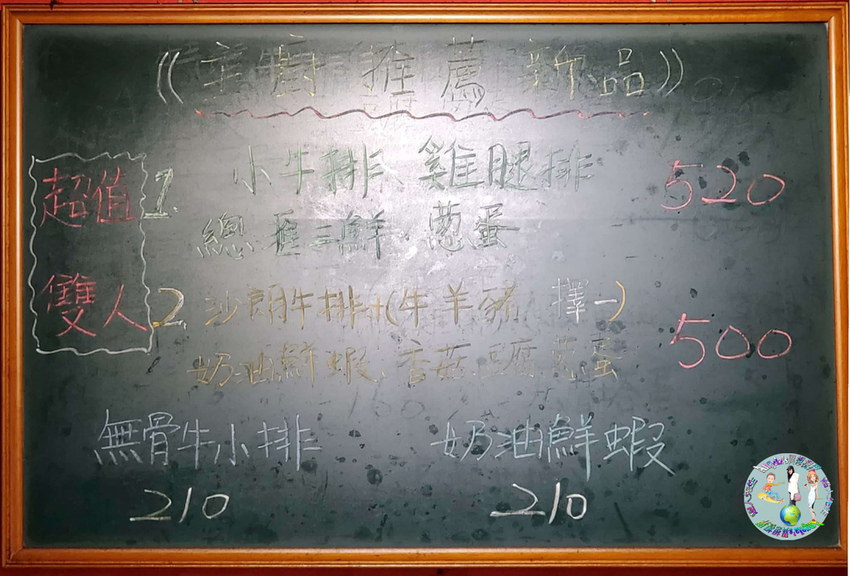 ((主廚推薦新品))
超值
雙人
1. 小牛排、雞腿排 520
總匯三鮮、蔥蛋
2. 沙朗牛排+(牛羊豬 擇一) 500
奶油鮮蝦、香菇豆腐蔥蛋
無骨牛小排 奶油鮮蝦
210 210